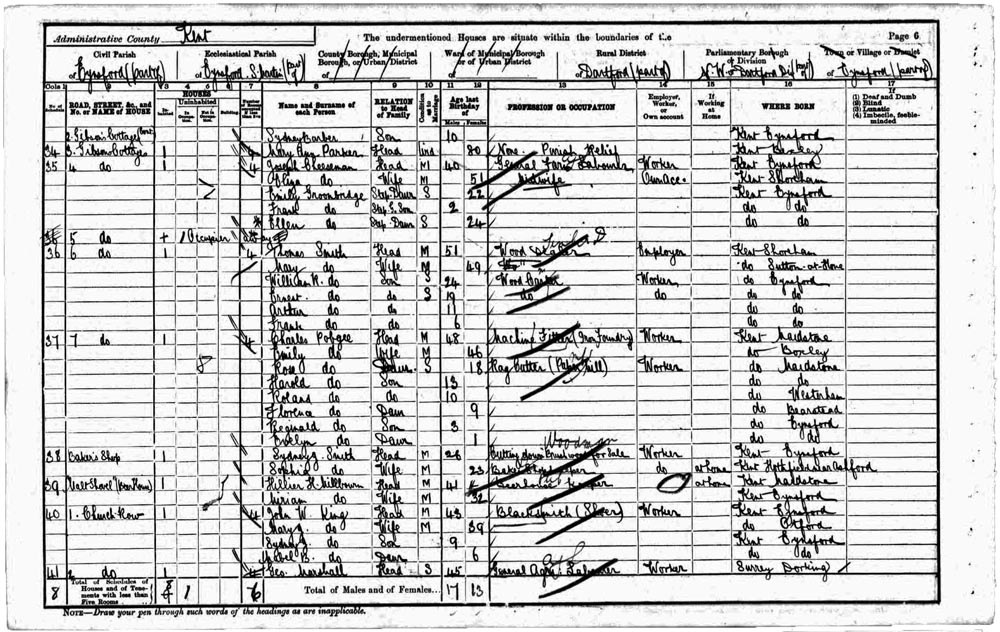 Administrative County Kent The undermentioned Houses are situate within the boundaries of the Page 6
Civil Parish Ecclesiastical Parish County Borough, Municipal Borough, or Urban District Ward of Municipal Borough or of Urban District Rural District Parliamentary Borough or Division Town or Village or Hamlet
of Eynsford (part of) of Eynsford S. Martin (part of) of of of Dartford (part of) of N.W. or Dartford Div (part of) of Eynsford (part of)
Cols 1 2 3 4 5 6 7 8 9 10 11 12 13 14 15 16 17
ROAD, STREET, &c., and No. or NAME of HOUSE HOUSES Uninhabited Building Name and Surname of each Person RELATION to Head of Family Condition as to Marriage Age last Birthday of Males Females PROFESSION OR OCCUPATION Employer, Worker, or Own account If Working at Home WHERE BORN If (1) Deaf and Dumb (2) Blind (3) Lunatic (4) Imbecile, feeble-minded
2. Gibson's Cottages Sydney Barker Son 10 Kent Eynsford
34 3. Gibson Cottages 1 Mary Ann Parker Head 80 None. Parish Relief Kent
35 4 do 1 4 Joseph Cheeseman Head M 40 General Farm Labourer Worker Kent Eynsford
Eliza do Wife M 51 Midwife Own Acc. Kent Shoreham
Emily Groombridge Step Daur S 22 Kent Eynsford
Frank do 2 do do
Ellen do Step Daur S 24 do do
5 do 1 Occupier
36 6 do 1 4 Thomas Smith Head M 51 Wood Employer Kent Shoreham
Mary do Wife M 49 do Sutton-at-Hone
William R. do Son S 24 Wood Worker do Eynsford
Ernest do do S 19 do do do do
Arthur do do 11 do do
Frank do do 6 do do
37 7 do 1 4 Charles Popgee Head M 48 Machine Fitter (Iron Foundry) Worker Kent Maidstone
Emily do Wife M 46 do Boxley
Rose do Daur S 18 Rag Cutter (Paper Mill) Worker do Maidstone
Harold do Son 13 do do
Roland do do 10 do Westerham
Florence do Daur 9 do Bearstead
Reginald do Son 3 do Eynsford
Evelyn do Daur 1 do do
Woodman
38 Baker's Shop 1 Sydney G. Smith Head M 26 Cutting down Brushwood for Sale Worker Kent Eynsford
Sophia do Wife M 23 Baker Shop keeper do at home Kent Hothfield near Ashford
39 1 Hillier H. Millbourn Head M 41 Beerhouse Keeper at home Kent Maidstone
Miriam do Wife M 32 Kent Eynsford
40 1. Church Row 1 4 John W. King Head M 43 Blacksmith (Shoer) Worker Kent Eynsford
Mary J. do Wife M 39 do Otford
Sydney J. do Son 9 Kent Eynsford
Mabel B. do Daur 6 do do
41 2 do 1 Geo. Marshall Head S 45 General Agri. Labourer Worker Surrey Dorking
8 Total of Schedules of Houses and of Tenements with less than Five Rooms 8 1 6 Total of Males and of Females... 17 13
NOTE—Draw your pen through such words of the headings as are inapplicable.